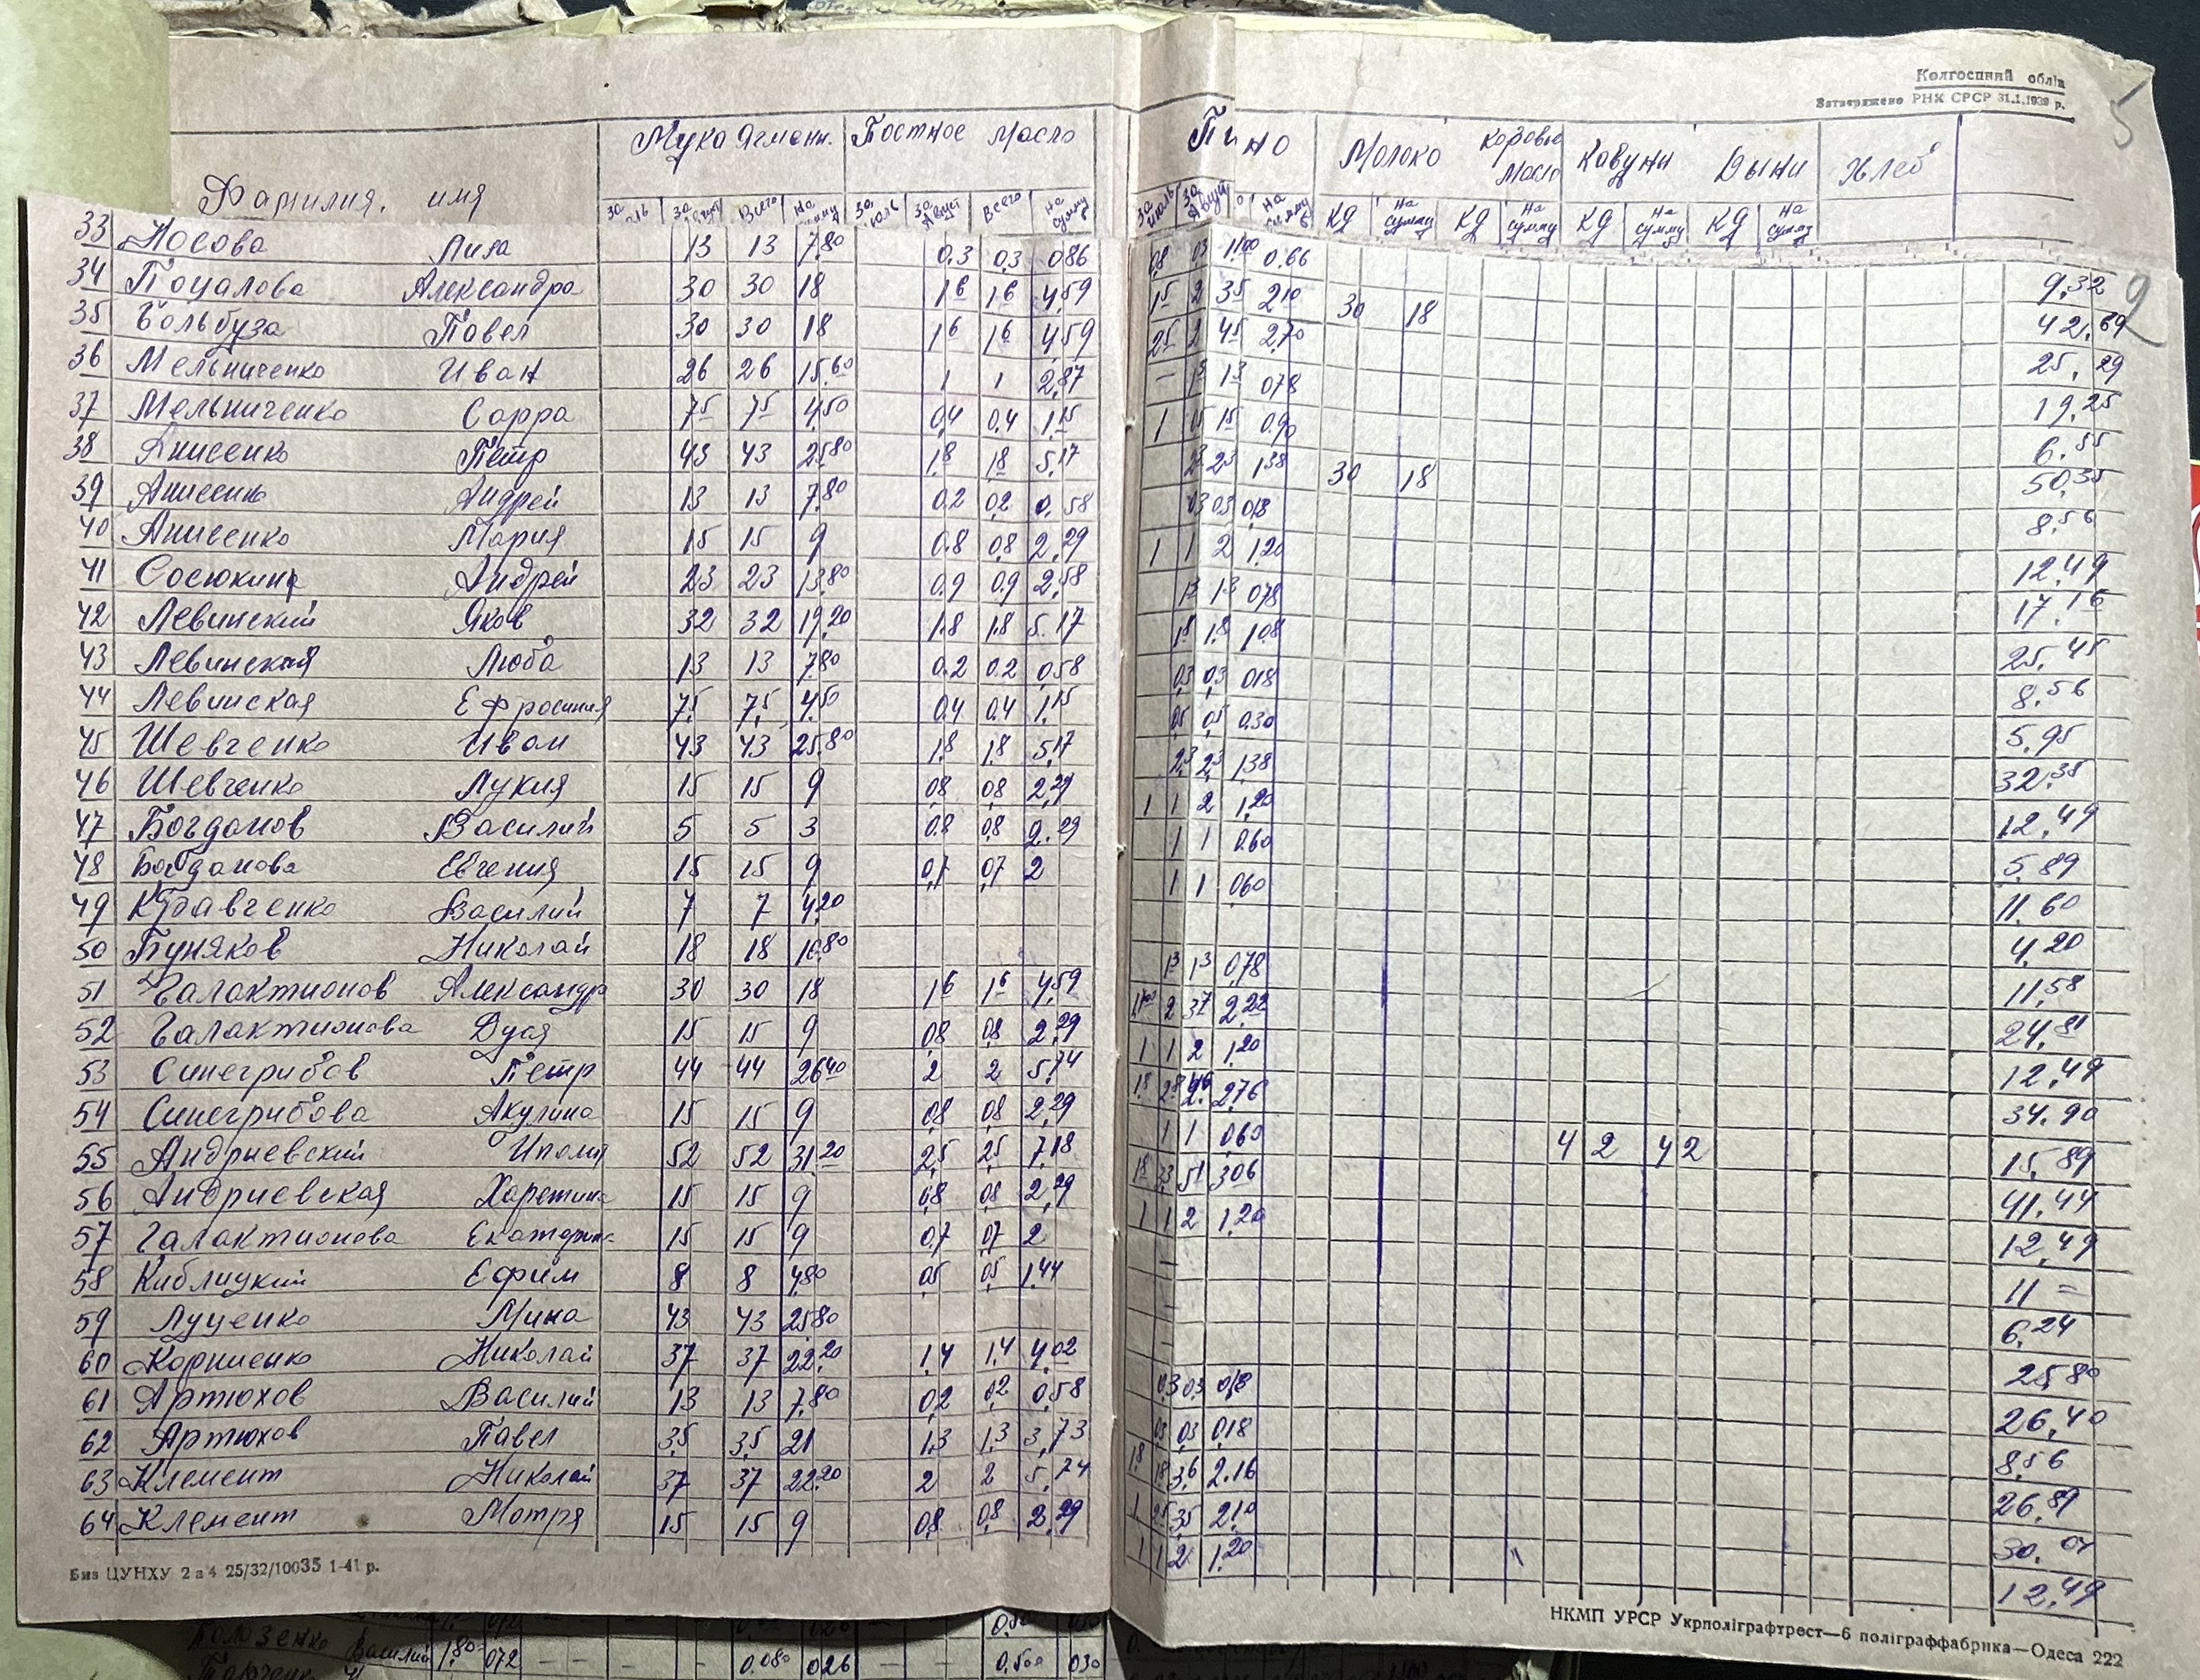 Колгоспний облік
Затверджено РНК СРСР 31.1.1939 р.
5
Фамилия, имя Мука Ягменн. Постное Масло Пшно Молоко Коровье Масло Кавуни Дыни Хлеб
за Авгут Всего На сумму за июль за Авгут Всего На сумму за июль за Авгут На сумму КД На сумму КД На сумму КД На сумму КД На сумму
33 Носова Лиза 13 13 7,80 0,3 0,3 086 08 03 1,00 0.66 9,32
34 Поцалова Александра 30 30 18 16 16 4,59 15 2 35 210 30 18 42,69
35 Больбуза Павел 30 30 18 16 16 459 25 2 45 2,70 25,29
36 Мельниченко Иван 26 26 15,60 1 1 2,87 — 13 13 078 19,25
37 Мельниченко Сарра 75 75 4,50 0,4 0,4 1,15 1 05 15 0.90 6,55
38 Анисенко Петр 43 43 2580 1,8 1,8 5,17 23 23 138 30 18 50,35
39 Анисенко Андрей 13 13 7,80 0.2 0,2 0,58 03 03 018 8,56
40 Анисенко Мария 15 15 9 0.8 0,8 2,29 1 1 2 1,20 12,49
41 Сосюкина Андрей 23 23 13,80 0.9 0.9 2,58 13 13 078 17,16
42 Левинский Яков 32 32 19,20 1.8 1.8 5.17 18 1,8 108 25,45
43 Левинская Люба 13 13 7,80 0.2 0.2 0,58 03 0,3 018 8,56
44 Левинская Ефросиния 7,5 7,5 4,50 0,4 0.4 1,15 05 0,5 0.30 5,95
45 Шевченко Иван 43 43 25,80 1,8 1.8 5,17 2,3 2,3 1,38 32,35
46 Шевченко Лукия 15 15 9 0,8 0,8 2,29 1 1 2 1,20 12,49
47 Богданов Василий 5 5 3 0.8 0,8 2.29 1 1 0.60 5,89
48 Богданова Евгения 15 15 9 0,7 0,7 2 1 1 060 11,60
49 Кравченко Василий 7 7 4,20 4,20
50 Пуняков Николай 18 18 10,80 13 13 0,78 11,58
51 Галактионов Александр 30 30 18 16 16 4,59 1,700 2 37 2,22 24,81
52 Галактионова Дуся 15 15 9 0,8 0,8 2,29 1 1 2 1,20 12,49
53 Синегрибов Петр 44 44 2640 2 2 5,74 18 28 46 2,76 34,90
54 Синегрибова Акулина 15 15 9 0,8 0,8 2,29 1 1 0,60 4 2 4 2 15,89
55 Андриевский Иполит 52 52 31,20 2,5 2,5 7,18 18 33 51 306 41,44
56 Андриевская Харетина 15 15 9 0,8 0,8 2,29 1 1 2 1,20 12,49
57 Галактионова Екатерина 15 15 9 0,7 0,7 2 11 =
58 Киблицкий Ефим 8 8 4,80 0,5 0,5 1,44 6,24
59 Луценко Мина 43 43 25,80 25,80
60 Корниенко Николай 37 37 22,20 1,4 1,4 4,02 0,3 0,3 018 26,40
61 Артюхов Василий 13 13 7,80 0,2 0,2 0,58 03 03 0,18 8,56
62 Артюхов Павел 3,5 3,5 21 1,3 1,3 3,73 1,8 18 3,6 2.16 26,89
63 Клемент Николай 37 37 22,20 2 2 5,74 1 25 3,5 2,10 30,04
64 Клемент Мотря 15 15 9 0,8 0,8 2,29 1 1 2 1,20 12,49
Биз ЦУНХУ 2 а 4 25/32/10035 1-41 р.
НКМП УРСР Укрполіграфтрест—6 поліграффабрика—Одеса 222
Василий 1,80 072 — — — — 0.080 026 — — 0.500 030